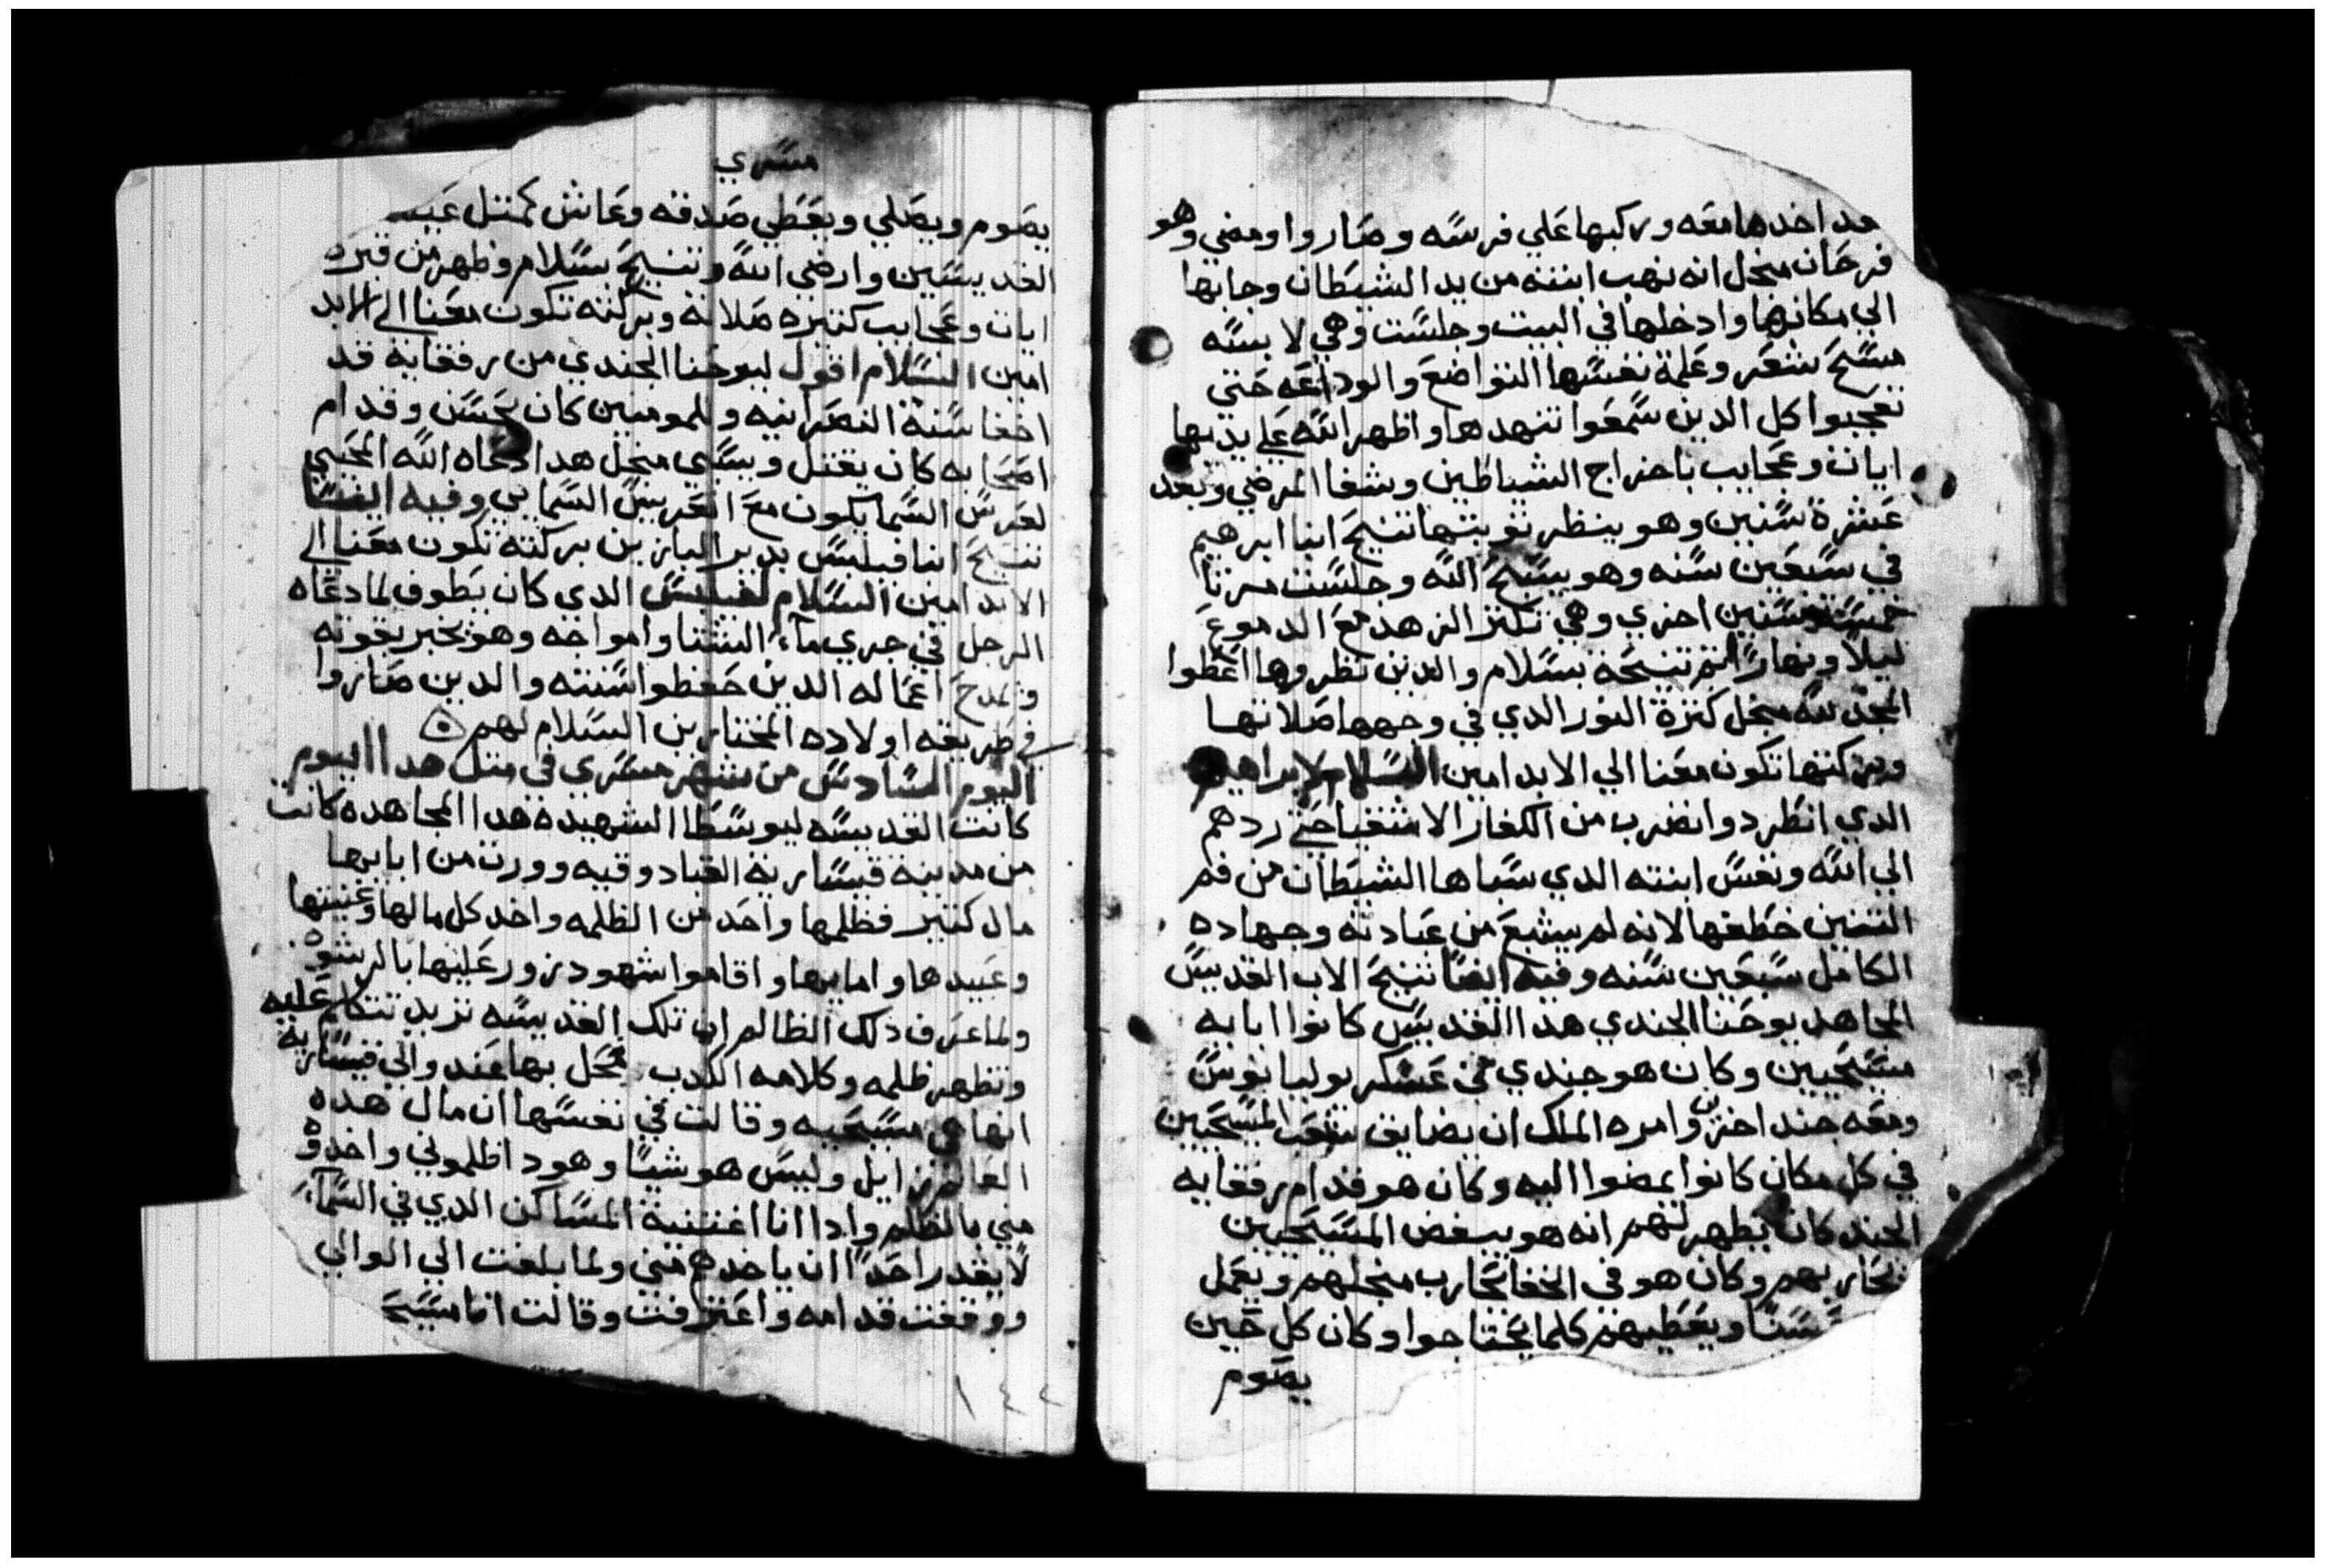 قد اخدها معه وركبها علي فرسه وصاروا ومضي وهو
فرحان منجل انه نهب ابنته من يد الشيطان وجابها
الي مكانها وادخلها في البيت وجلست وهي لابسه
مسح شعر وعلمة نفسها التواضع والوداعه حتي
تعجبوا كل الدين سمعوا تنهدها واظهر الله علي يديها
ايات وعجايب باخراج الشياطين وشفا المرضي وبعد
عشرة سنين وهو ينظر توبتها تنيح ابنا ابرهيم
في سبعين سنه وهو يسبح الله وجلست مرتا
خمسة سنين اخري وهي تكتر الزهد مع الدموع
ليلاً ونهاراً تم تنيحة بسلام والدين نظروها اعطوا
المجد لله منجل كترة النور الدي في وجهها صلاتها
وبركتها تكون معنا الي الابد امين السلام لابراهيم
الدي انطرد وانضرب من الكفار الاشقيا حتي ردهم
الي الله ونفس ابنته الدي سباها الشيطان من فم
التنين خطفها لانه لم يشبع من عبادته وجهاده
الكامل سبعين سنه وفيه ايضاً تنيح الاب القديس
المجاهد يوحنا الجندي هدا القديس كانوا ابايه
مسيحيين وكان هو جندي في عسكر يوليانوس
ومعه جند اخرين وامره الملك ان يضايق شعب المسيحيين
في كل مكان كانوا يمضوا اليه وكان هو قدام رفقايه
الجند كان يظهر لهم انه هو يبغض المسيحيين
يحاربهم وكان هو في الخفا يحارب منجلهم ويعمل
حسناً ويعطيهم كلما يحتاجوا وكان كل حين
يصوم
مسري
يصوم ويصلي ويعطي صدقه وعاش كمتل عيشة
القديسين وارضي الله وتنيح بسلام وظهر من قبره
ايات وعجايب كتيره صلاته وبركته تكون معنا الي الابد
امين السلام اقول ليوحنا الجندي من رفقايه قد
اخفا سنة النصرانيه وللمومنين كان يحسن وقدام
اصحابه كان يقتل ويسبي منجل هدا دعاه الله المحيي
لعرس السما يكون مع العريس السمايي وفيه ايضاً
تنيح ابنا فيلبس بدير البازين بركته تكون معنا الي
الابد امين السلام لفيلبس الدي كان يطوف لما دعاه
الرجل في جري ماء الشتا وامواجه وهو يخبر بقوته
ويمدح اعماله الدين حفظوا سنته والدين صاروا
في طريقه اولاده المختارين السلام لهم
اليوم السادس من شهر مسري في متل هدا اليوم
كانت القديسه ليوسطا الشهيدة هدا المجاهده كانت
من مدينة قيسارية القبادوقيه وورت من ابايها
مال كتير فظلمها واحد من الظلمه واخد كل مالها وغنيتها
وعبيدها وامايها واقاموا شهود زور عليها بالرشوه
ولما عرف ذلك الظالم ان تلك القديسه تريد تتكلم عليه
وتظهر ظلمه وكلامه الكدب عجل بها عند والي قيسارية
انها هي مسيحيه وقالت في نفسها ان مال هده
العالم زايل وليس هو شياً وهودا ظلموني واخدوه
مني بالظلم وادا انا اغتنية المساكن الدي في السماء
لا يقدر احداً ان ياخدهم مني ولما بلغت الي الوالي
ووقفت قدامه واعترفت وقالت انا مسيح
١٤٢